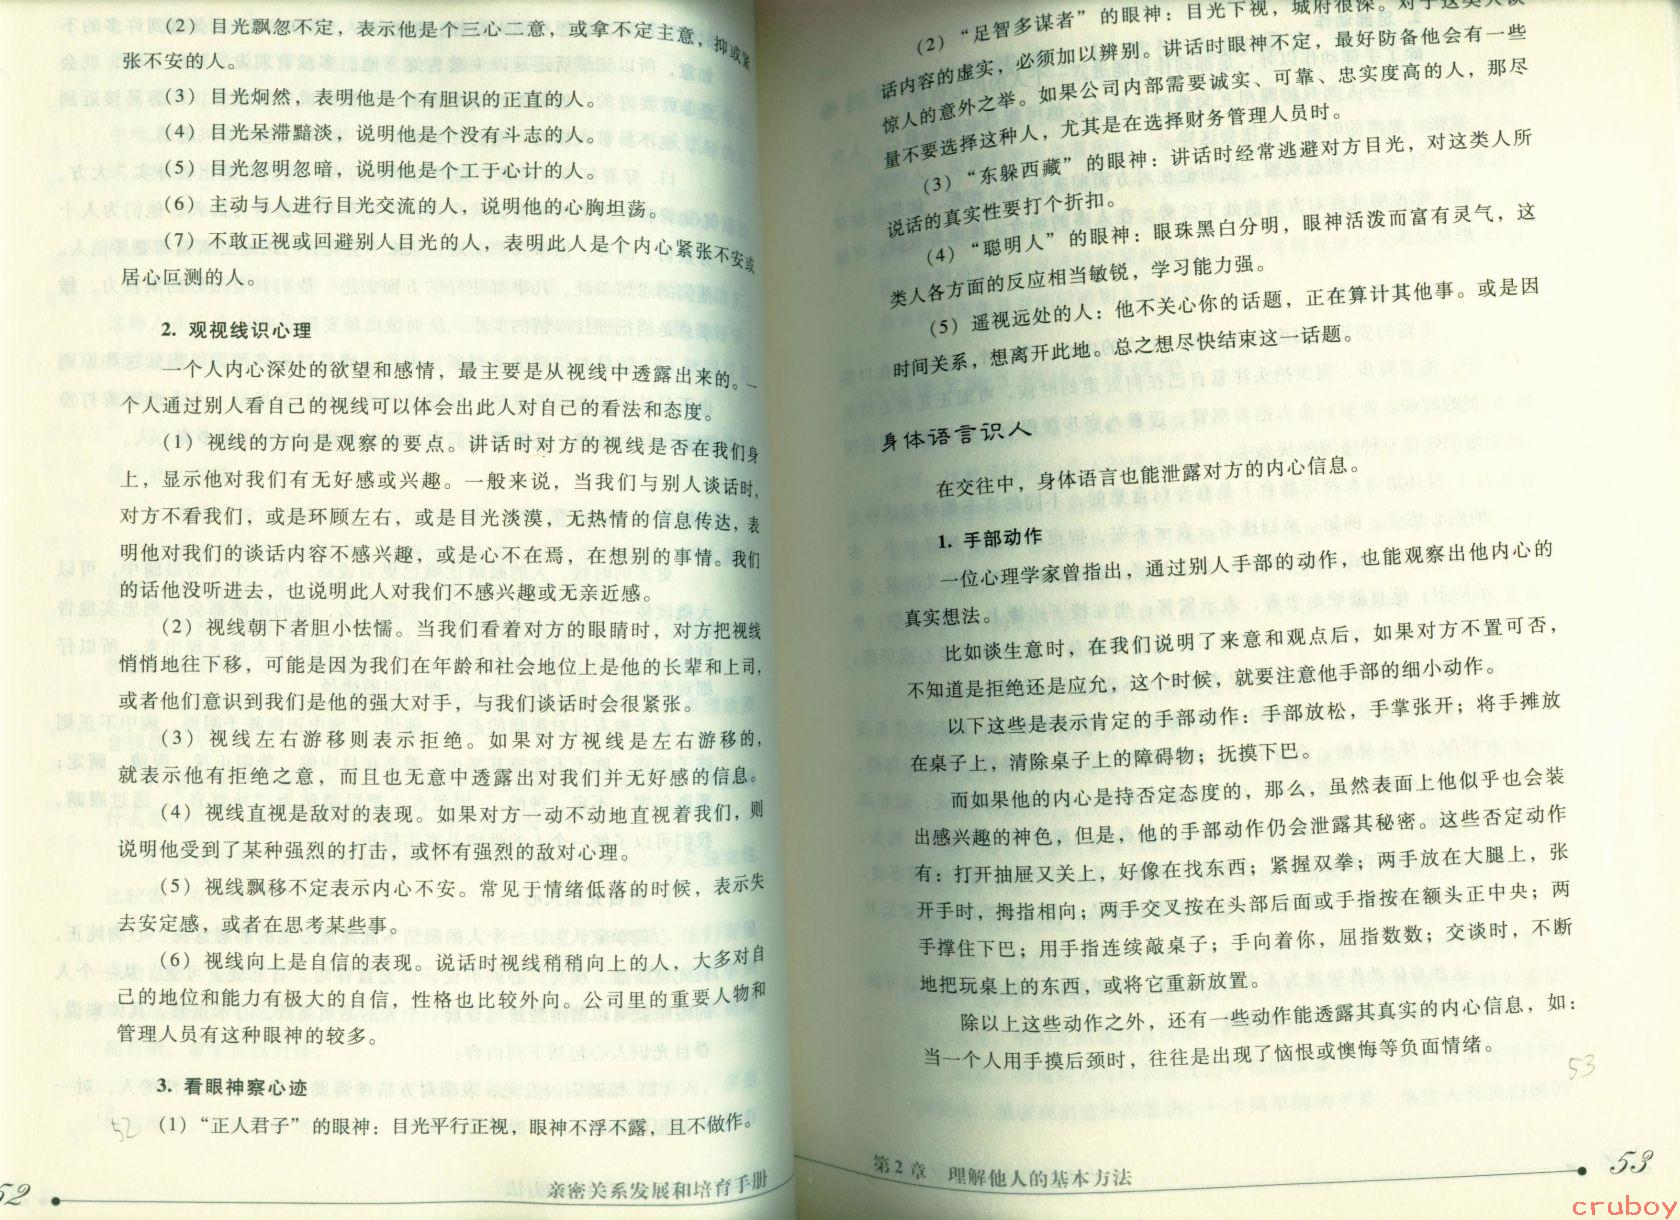 (2) 目光飘忽不定，表示他是个三心二意，或拿不定主意，抑或紧
张不安的人。
(3) 目光炯然，表明他是个有胆识的正直的人。
(4) 目光呆滞黯淡，说明他是个没有斗志的人。
(5) 目光忽明忽暗，说明他是个工于心计的人。
(6) 主动与人进行目光交流的人，说明他的心胸坦荡。
(7) 不敢正视或回避别人目光的人，表明此人是个内心紧张不安或
居心叵测的人。
2. 观视线识心理
一个人内心深处的欲望和感情，最主要是从视线中透露出来的。一
个人通过别人看自己的视线可以体会出此人对自己的看法和态度。
(1) 视线的方向是观察的要点。讲话时对方的视线是否在我们身
上，显示他对我们有无好感或兴趣。一般来说，当我们与别人谈话时，
对方不看我们，或是环顾左右，或是目光淡漠，无热情的信息传达，表
明他对我们的谈话内容不感兴趣，或是心不在焉，在想别的事情。我们
的话他没听进去，也说明此人对我们不感兴趣或无亲近感。
(2) 视线朝下者胆小怯懦。当我们看着对方的眼睛时，对方把视线
悄悄地往下移，可能是因为我们在年龄和社会地位上是他的长辈和上司，
或者他们意识到我们是他的强大对手，与我们谈话时会很紧张。
(3) 视线左右游移则表示拒绝。如果对方视线是左右游移的，
就表示他有拒绝之意，而且也无意中透露出对我们并无好感的信息。
(4) 视线直视是敌对的表现。如果对方一动不动地直视着我们，则
说明他受到了某种强烈的打击，或怀有强烈的敌对心理。
(5) 视线飘移不定表示内心不安。常见于情绪低落的时候，表示失
去安定感，或者在思考某些事。
(6) 视线向上是自信的表现。说话时视线稍稍向上的人，大多对自
己的地位和能力有极大的自信，性格也比较外向。公司里的重要人物和
管理人员有这种眼神的较多。
3. 看眼神察心迹
(1) “正人君子”的眼神：目光平行正视，眼神不浮不露，且不做作。
52
52
亲密关系发展和培育手册
(2) “足智多谋者”的眼神：目光下视，城府很深。对于这类人谈
话内容的虚实，必须加以辨别。讲话时眼神不定，最好防备他会有一些
惊人的意外之举。如果公司内部需要诚实、可靠、忠实度高的人，那尽
量不要选择这种人，尤其是在选择财务管理人员时。
(3) “东躲西藏”的眼神：讲话时经常逃避对方目光，对这类人所
说话的真实性要打个折扣。
(4) “聪明人”的眼神：眼珠黑白分明，眼神活泼而富有灵气，这
类人各方面的反应相当敏锐，学习能力强。
(5) 遥视远处的人：他不关心你的话题，正在算计其他事。或是因
时间关系，想离开此地。总之想尽快结束这一话题。
身体语言识人
在交往中，身体语言也能泄露对方的内心信息。
1. 手部动作
一位心理学家曾指出，通过别人手部的动作，也能观察出他内心的
真实想法。
比如谈生意时，在我们说明了来意和观点后，如果对方不置可否，
不知道是拒绝还是应允，这个时候，就要注意他手部的细小动作。
以下这些是表示肯定的手部动作：手部放松，手掌张开；将手摊放
在桌子上，清除桌子上的障碍物；抚摸下巴。
而如果他的内心是持否定态度的，那么，虽然表面上他似乎也会装
出感兴趣的神色，但是，他的手部动作仍会泄露其秘密。这些否定动作
有：打开抽屉又关上，好像在找东西；紧握双拳；两手放在大腿上，张
开手时，拇指相向；两手交叉按在头部后面或手指按在额头正中央；两
手撑住下巴；用手指连续敲桌子；手向着你，屈指数数；交谈时，不断
地把玩桌上的东西，或将它重新放置。
除以上这些动作之外，还有一些动作能透露其真实的内心信息，如：
当一个人用手摸后颈时，往往是出现了恼恨或懊悔等负面情绪。
53
第2章 理解他人的基本方法
53
cruboy